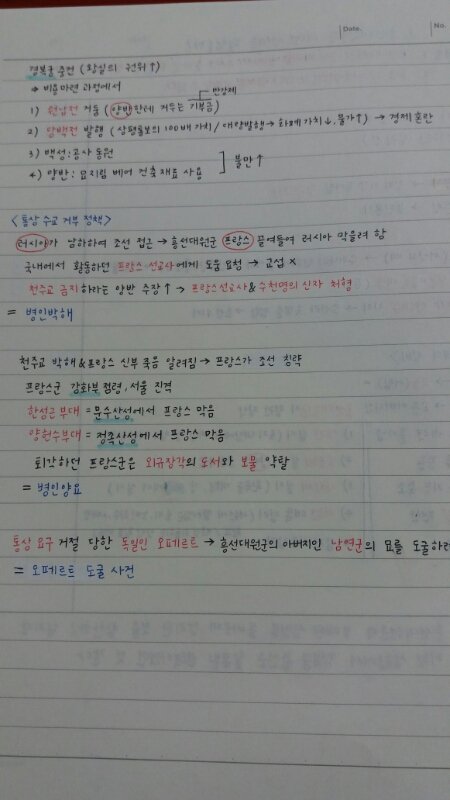 Date.
No.
경복궁 중건 (왕실의 권위↑)
⇒ 비용마련 과정에서
반강제
1) 원납전 거둠 (양반한테 거두는 기부금)
2) 당백전 발행 (상평통보의 100배 가치 / 대량발행 → 화폐가치↓, 물가↑) → 경제혼란
3) 백성: 공사 동원
4) 양반: 묘지림 베어 건축재료 사용
불만↑
<통상 수교 거부 정책>
러시아가 남하하여 조선 접근 → 흥선대원군 프랑스 끌여들여 러시아 막을려 함
국내에서 활동하던 프랑스 선교사에게 도움 요청 → 교섭 X
천주교 금지하라는 양반 주장↑ → 프랑스선교사 & 수천명의 신자 처형
= 병인박해
천주교 박해 & 프랑스 신부 죽음 알려짐 → 프랑스가 조선 침략
프랑스군 강화부 점령, 서울 진격
한성근부대 = 문수산성에서 프랑스 막음
양헌수부대 = 정족산성에서 프랑스 막음
퇴각하던 프랑스군은 외규장각의 도서와 보물 약탈
= 병인양요
통상 요구 거절 당한 독일인 오페르트 → 흥선대원군의 아버지인 남연군의 묘를 도굴하려
= 오페르트 도굴 사건